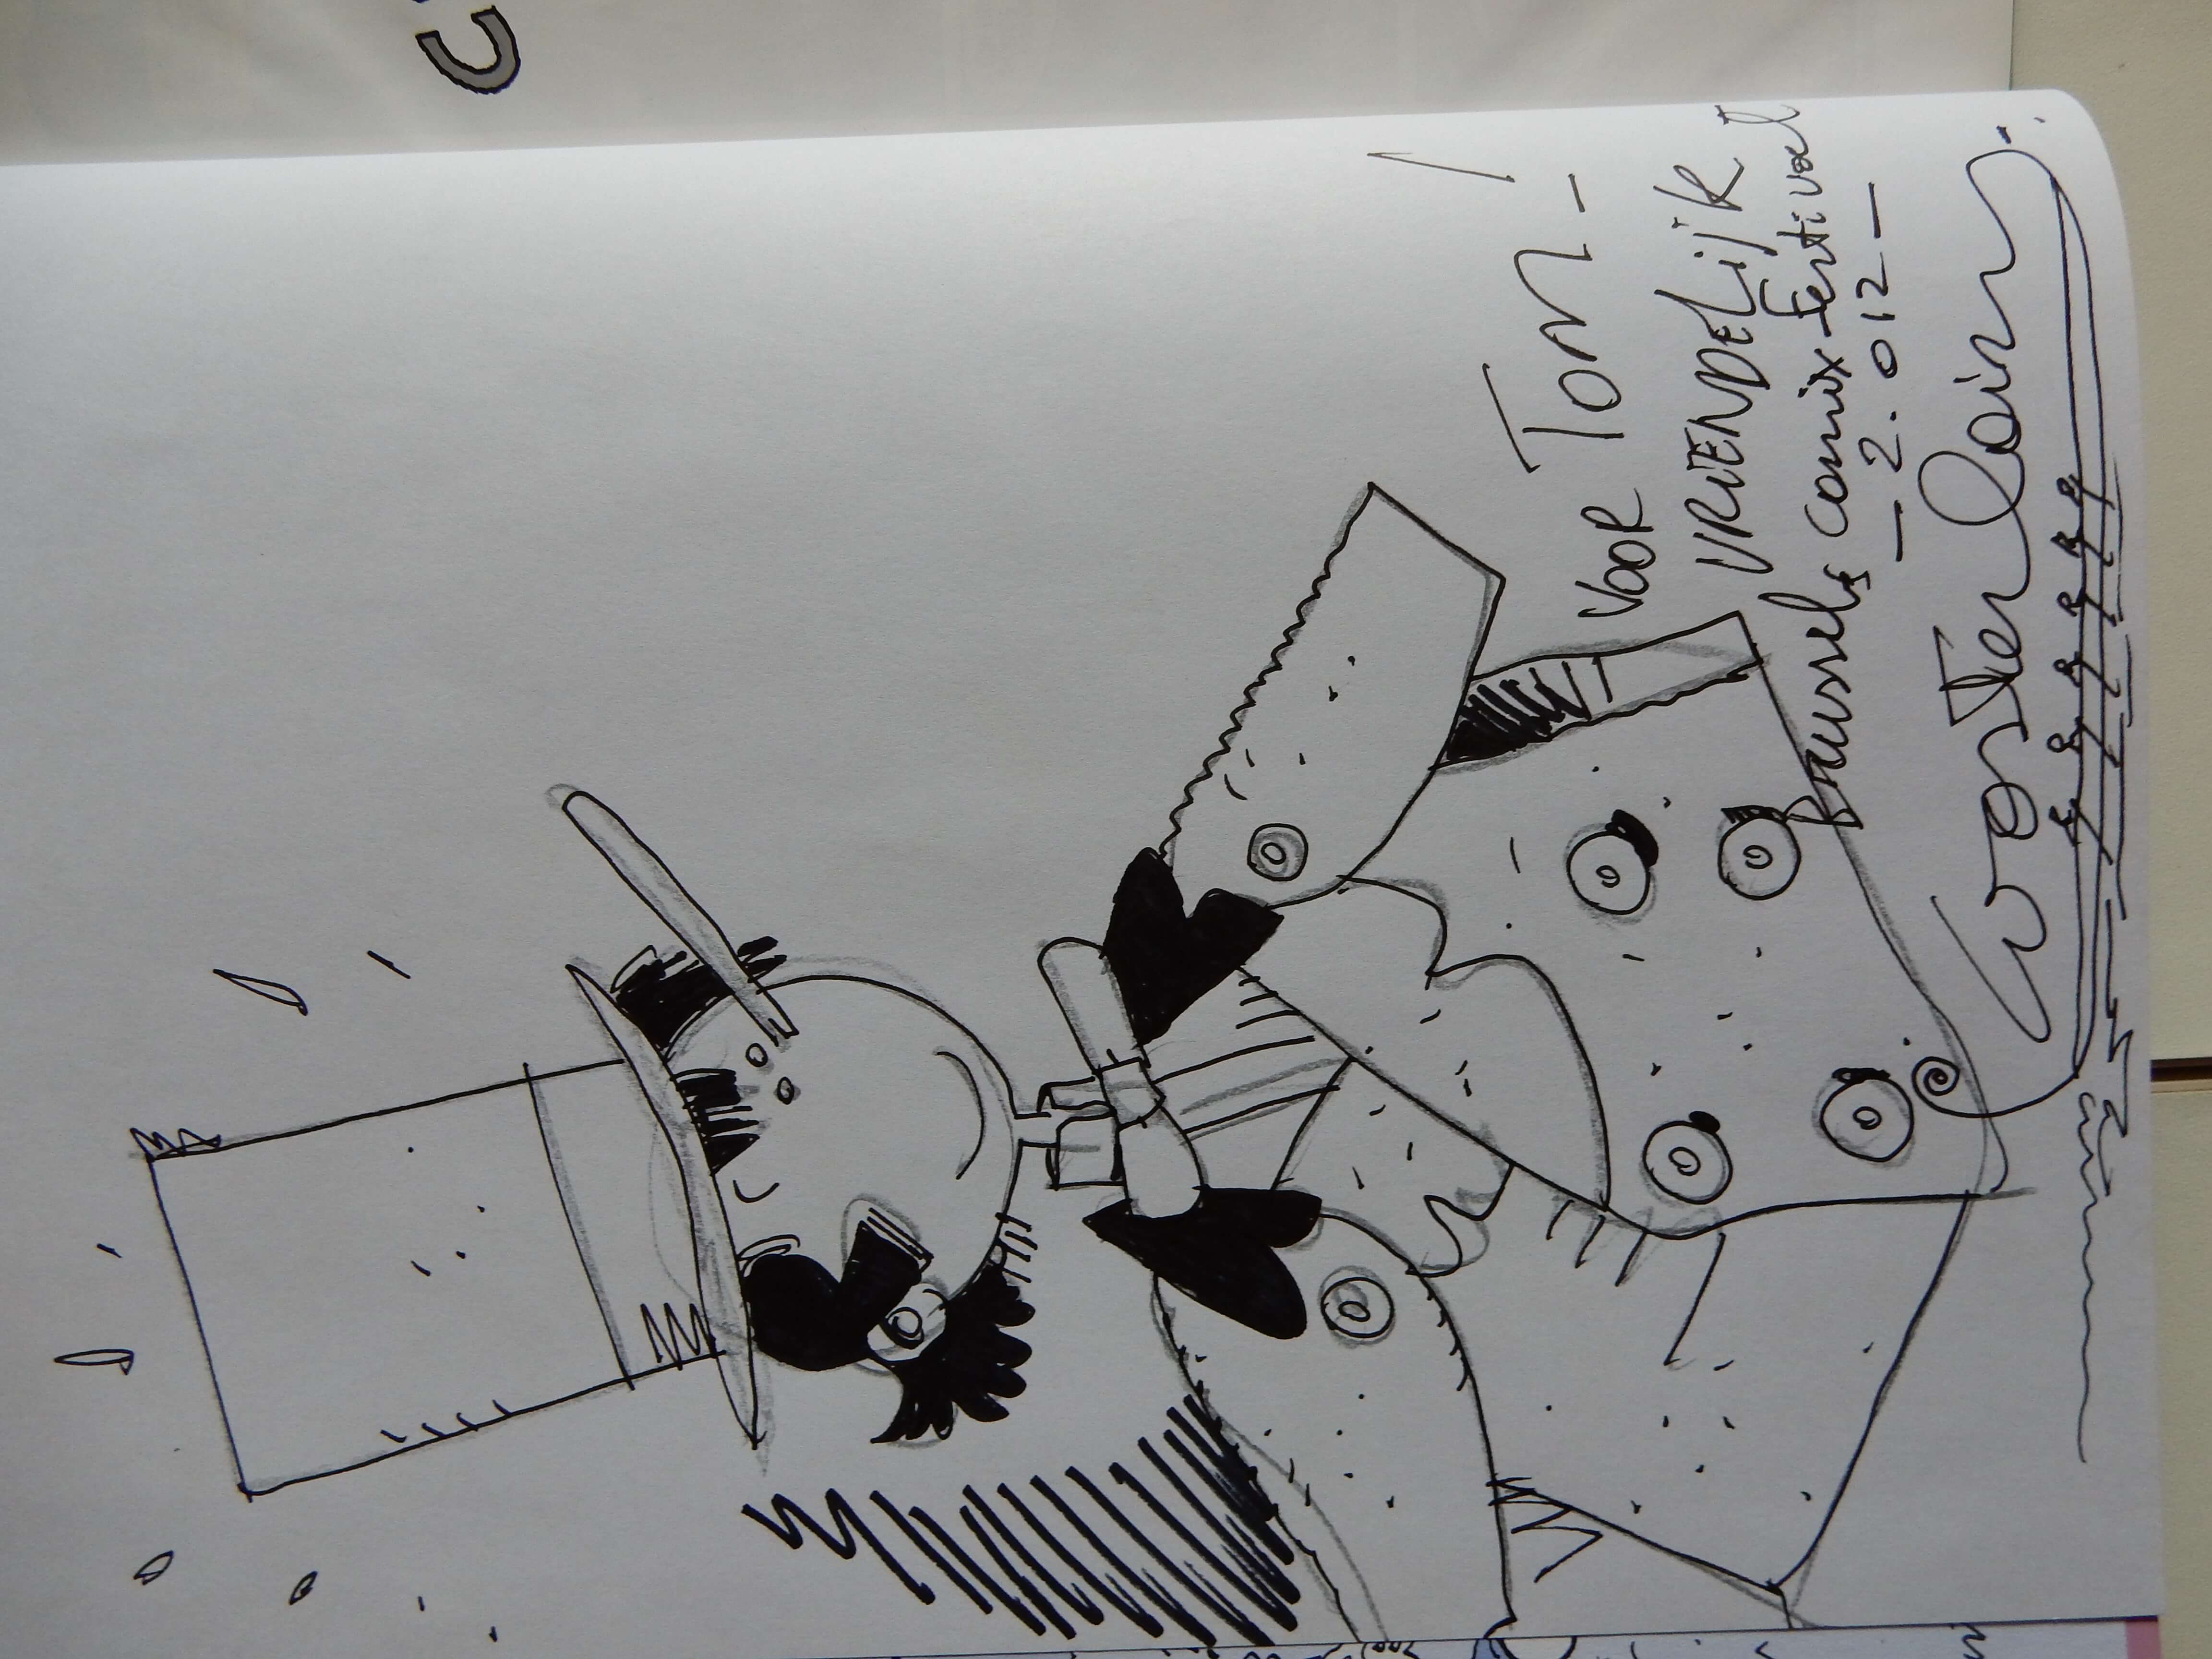 VOOR TOM!
VRIENDELIJK
Brussels comix Festival
- 2.012 -
Wosterlain
C